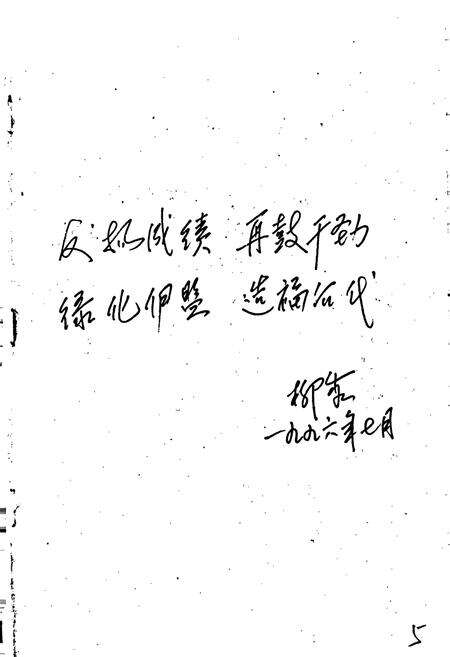 发扬成绩 再鼓干劲
绿化伊盟 造福后代
柳秀
一九九六年七月
5